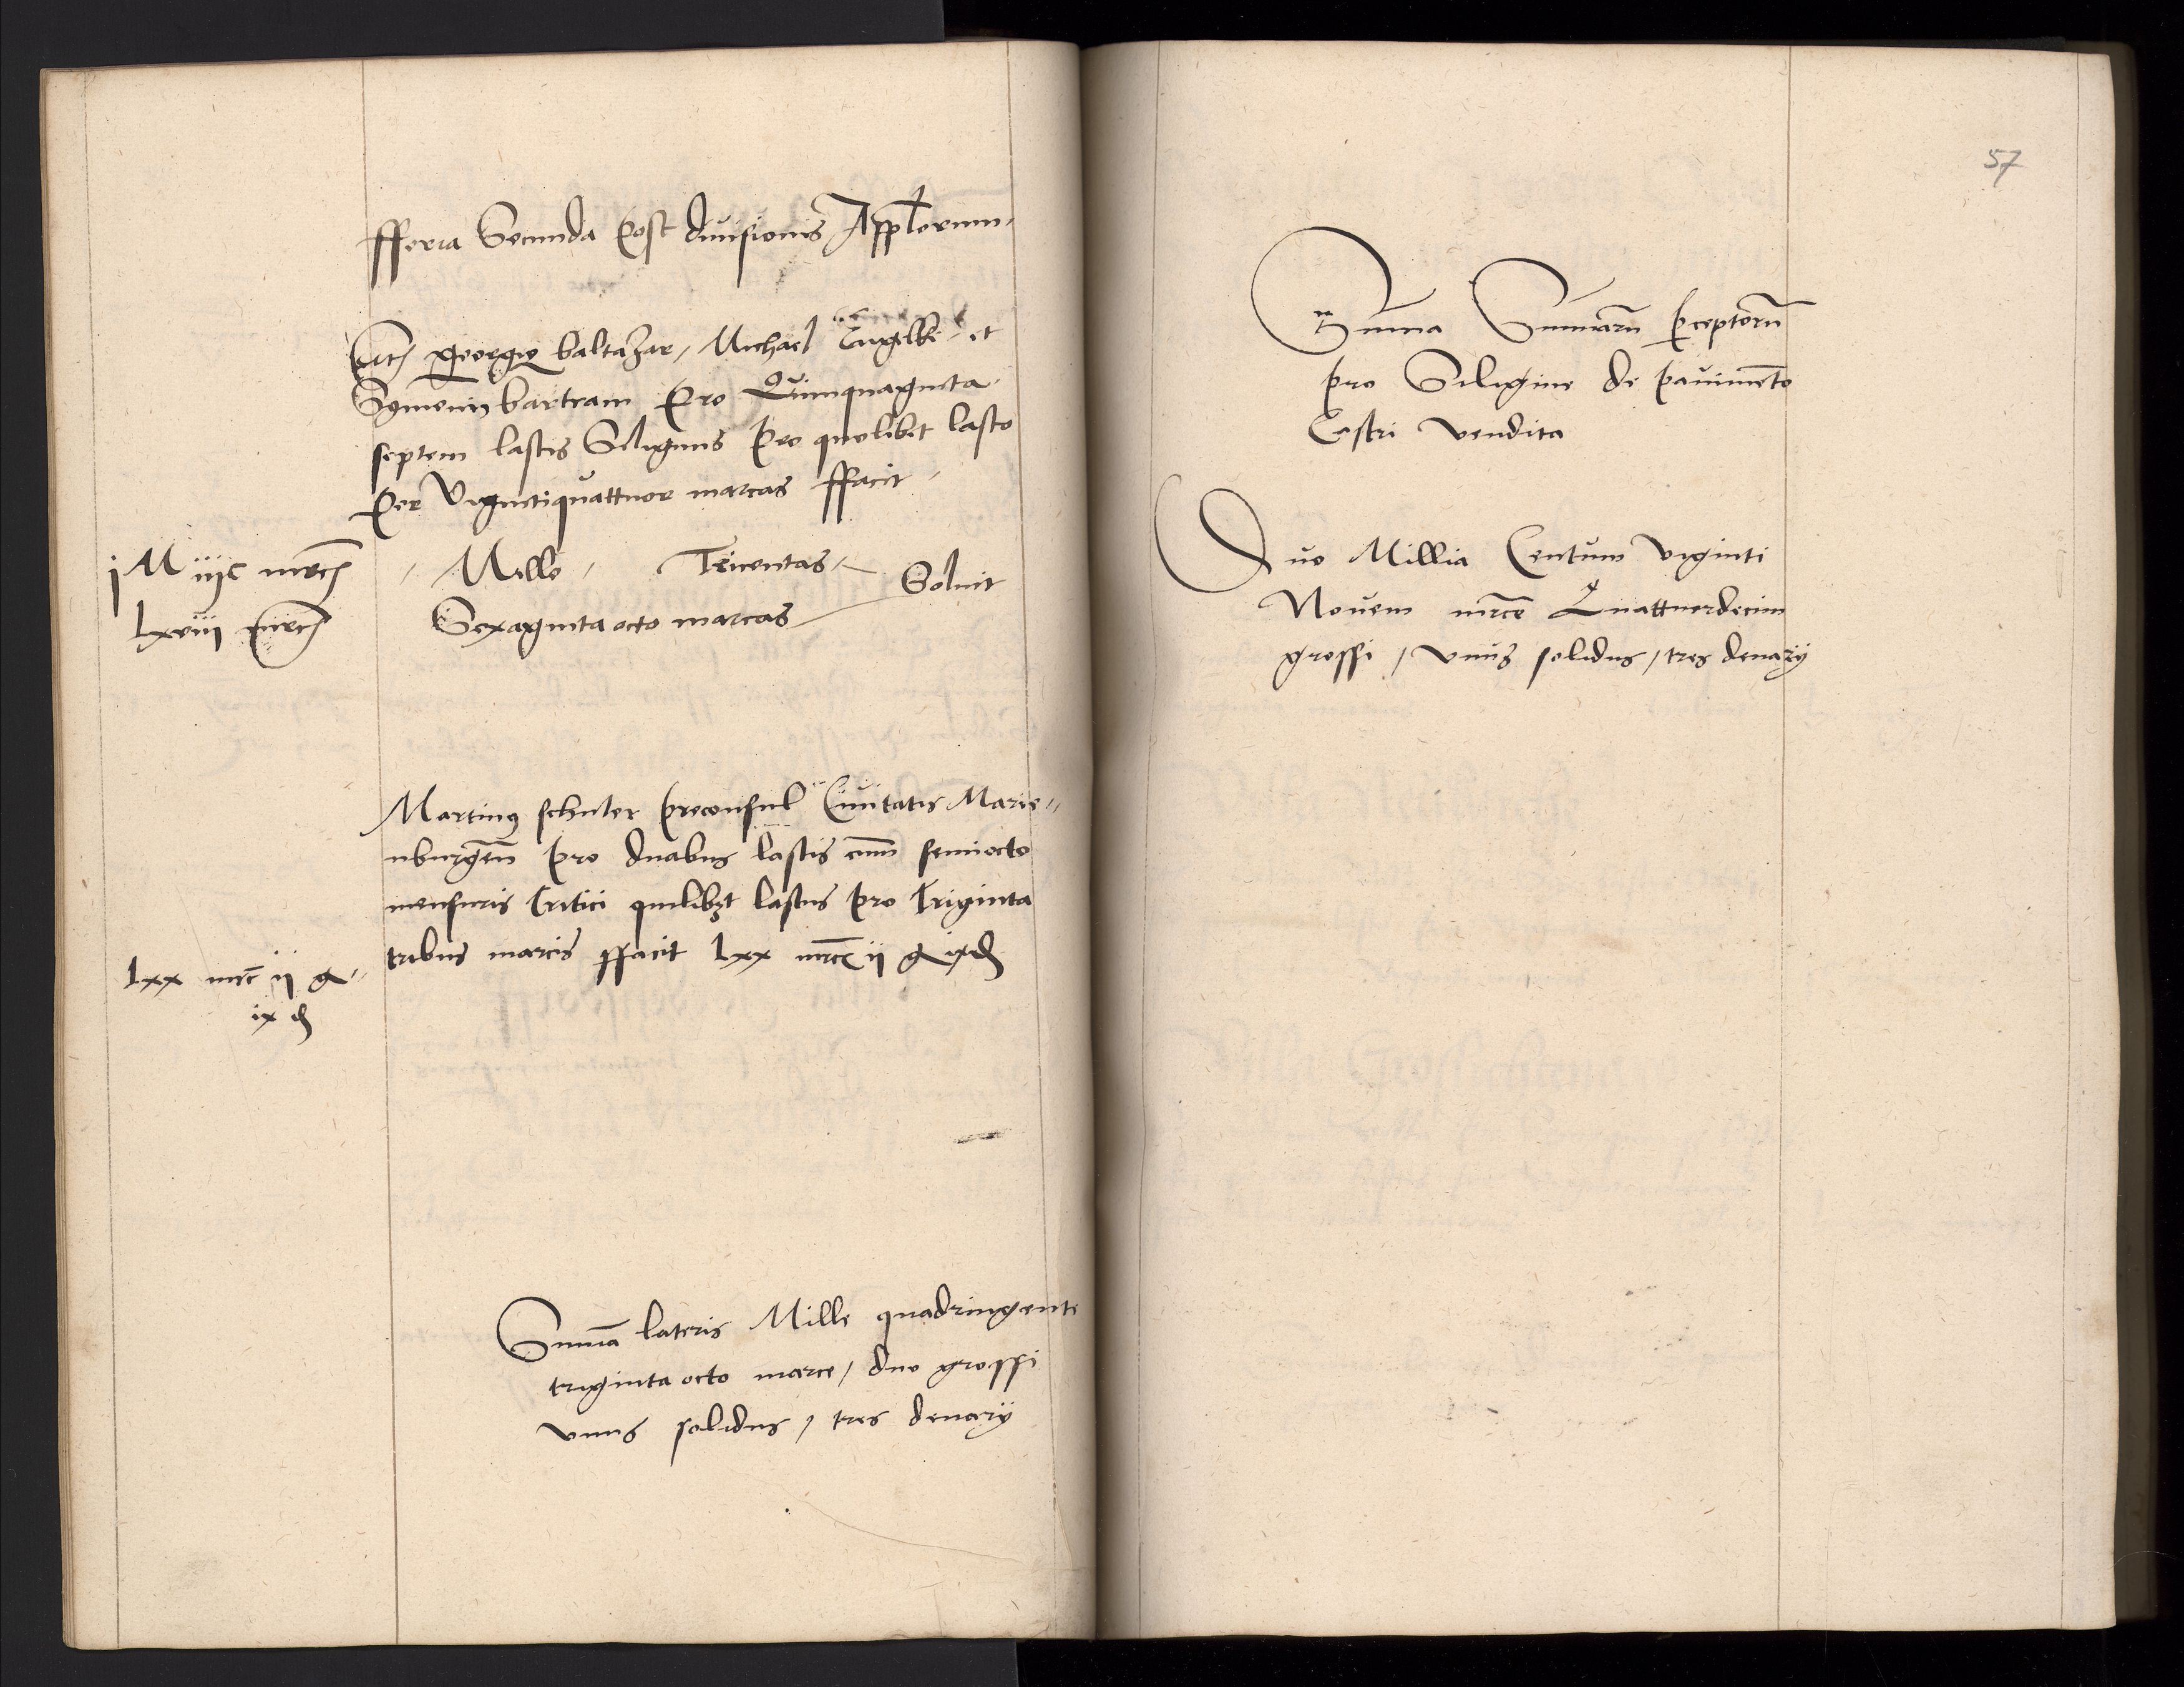 fferia Secunda post diuisionis Appl̄orum
Georgiꝰ baltazar, Michael Engelke et
Symeon bartram Pro Quinquaginta
septem lastis Siliginis pro quolibet lasto
Per Vigintiquattuor marcas ffacit
j M iijc mrc̄
lxviij mrc̄
Mille Tricentas
Sexaginta octo marcas
Soluit
Martinꝰ schulcz preconsul Ciuitatis Marie-
nburgen̄ pro duabus lastis cum semiocto
mensuris Tritici quilibet lastus pro Triginta
tribus marcis ffacit lxx mrc̄ ij g ix d
lxx mrc̄ ij g
ix d
Summa lateris Mille quadringente
triginta octo marce, duo grossi
vnus solidus, tres denarij
57
Summa Summarū Perceptorū
pro Siligine de pauimēto
Castri vendita
Duo Millia Centum viginti
Nouem mrce Quattuordecim
grossi, vnus solidus, tres denarij